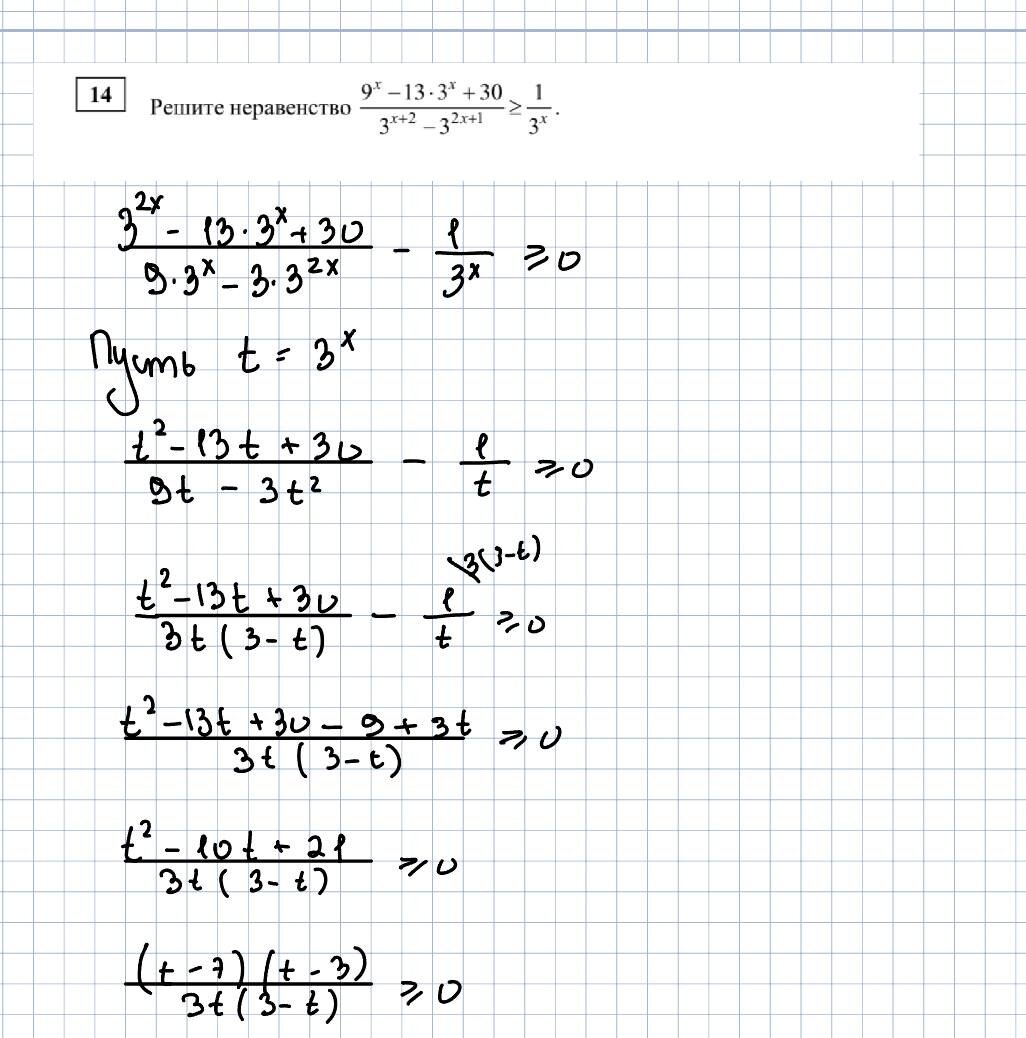 14 Решите неравенство (9^x − 13·3^x + 30)/(3^(x+2) − 3^(2x+1)) ≥ 1/3^x .
(3^(2x) − 13·3^x + 30)/(9·3^x − 3·3^(2x)) − 1/3^x ≥ 0
Пусть t = 3^x
(t² − 13t + 30)/(9t − 3t²) − 1/t ≥ 0
(t² − 13t + 30)/(3t(3 − t)) − 1/t \3(3−t) ≥ 0
(t² − 13t + 30 − 9 + 3t)/(3t(3 − t)) ≥ 0
(t² − 10t + 21)/(3t(3 − t)) ≥ 0
((t − 7)(t − 3))/(3t(3 − t)) ≥ 0